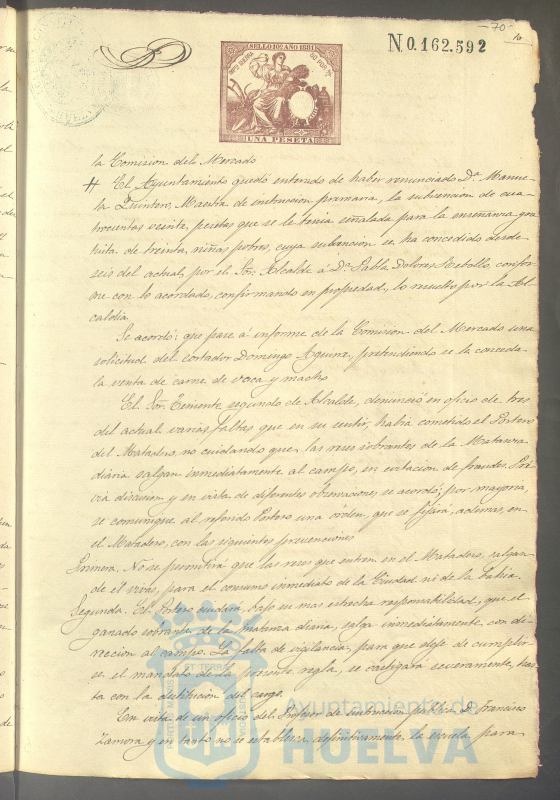 70
SELLO 10º AÑO 1881
UNA PESETA
N 0.162.592
la Comision del Mercado
El Ayuntamiento quedó enterado de haber renunciado Dª Manue-
la Quintero, Maestra de instruccion primaria, la subvencion de cua-
trocientas veinte, pesetas que se le tenia señalada para la enseñanza gra-
tuita de treinta, niñas pobres, cuya subvencion se ha concedido desde
seis del actual, por el Sor. Alcalde á Dª Pabla Dolores Rebollo, confor-
me con lo acordado, confirmando en propiedad, lo resuelto por la Al-
caldia.
Se acordó: que pase á informe de la Comision del Mercado una
solicitud del cortador Domingo Aguirre, pretendiendo se le conceda
la venta de carne de vaca y macho
El Sor. Teniente segundo de Alcalde, denunció en oficio de tres
del actual varias faltas que en su sentir, habia cometido el Portero
del Matadero, no cuidando que las reses sobrantes de la Matanza
diaria salgan inmediatamente al campo, en evitacion de fraudes. Pré-
via discusion y en vista de diferentes observaciones, se acordó; por mayoria,
se comunique al referido Portero una órden, que se fijará, ademas, en
el Matadero, con las siguientes prevenciones
Primera. No se permitirá que las reses que entren en el Matadero, salgan
de él vivas, para el consumo inmediato de la Ciudad ni de la bahia.
Segunda. El Portero cuidará, bajo su mas estrecha responsabilidad, que el
ganado sobrante de la matanza diaria, salga inmediatamente con di-
reccion al campo. La falta de vigilancia, para que deje de cumplir-
se el mandato de la presente regla, se castigará severamente, has-
ta con la destitucion del cargo.
En vista de un oficio del Profesor de instruccion publica D. Francisco
Zamora y en tanto no se establezca, definitivamente, la escuela para
Ayuntamiento de
HUELVA